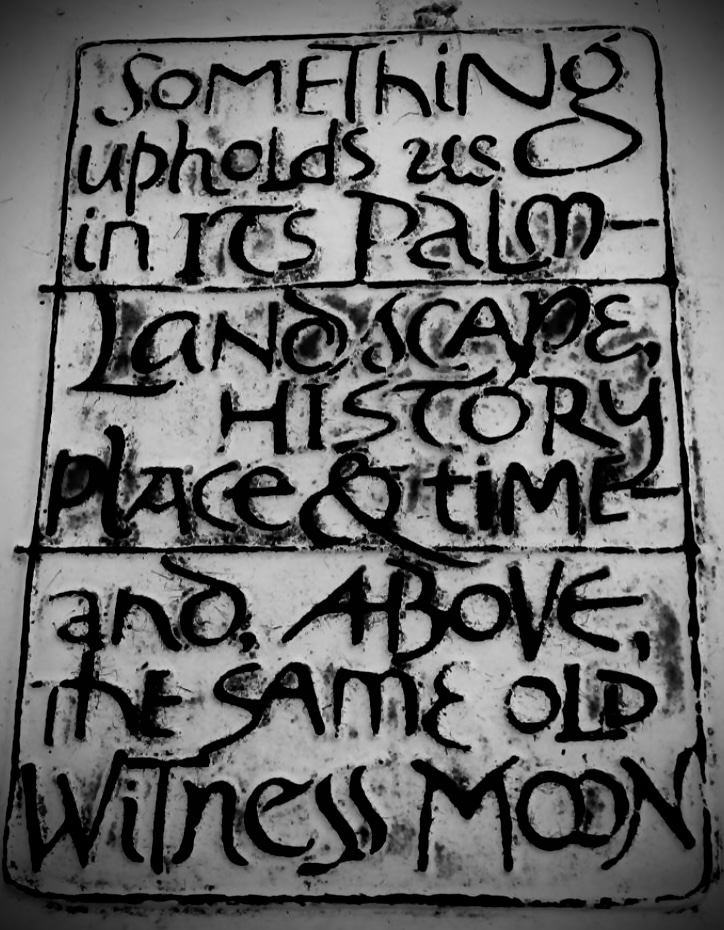 SOMEThiNg
upholds us
in ITS PaLm—
LaNdSCAPE,
HISTORY
plAce & tiME—
and, ABOVE,
thE SAME OLD
WiTness MOON